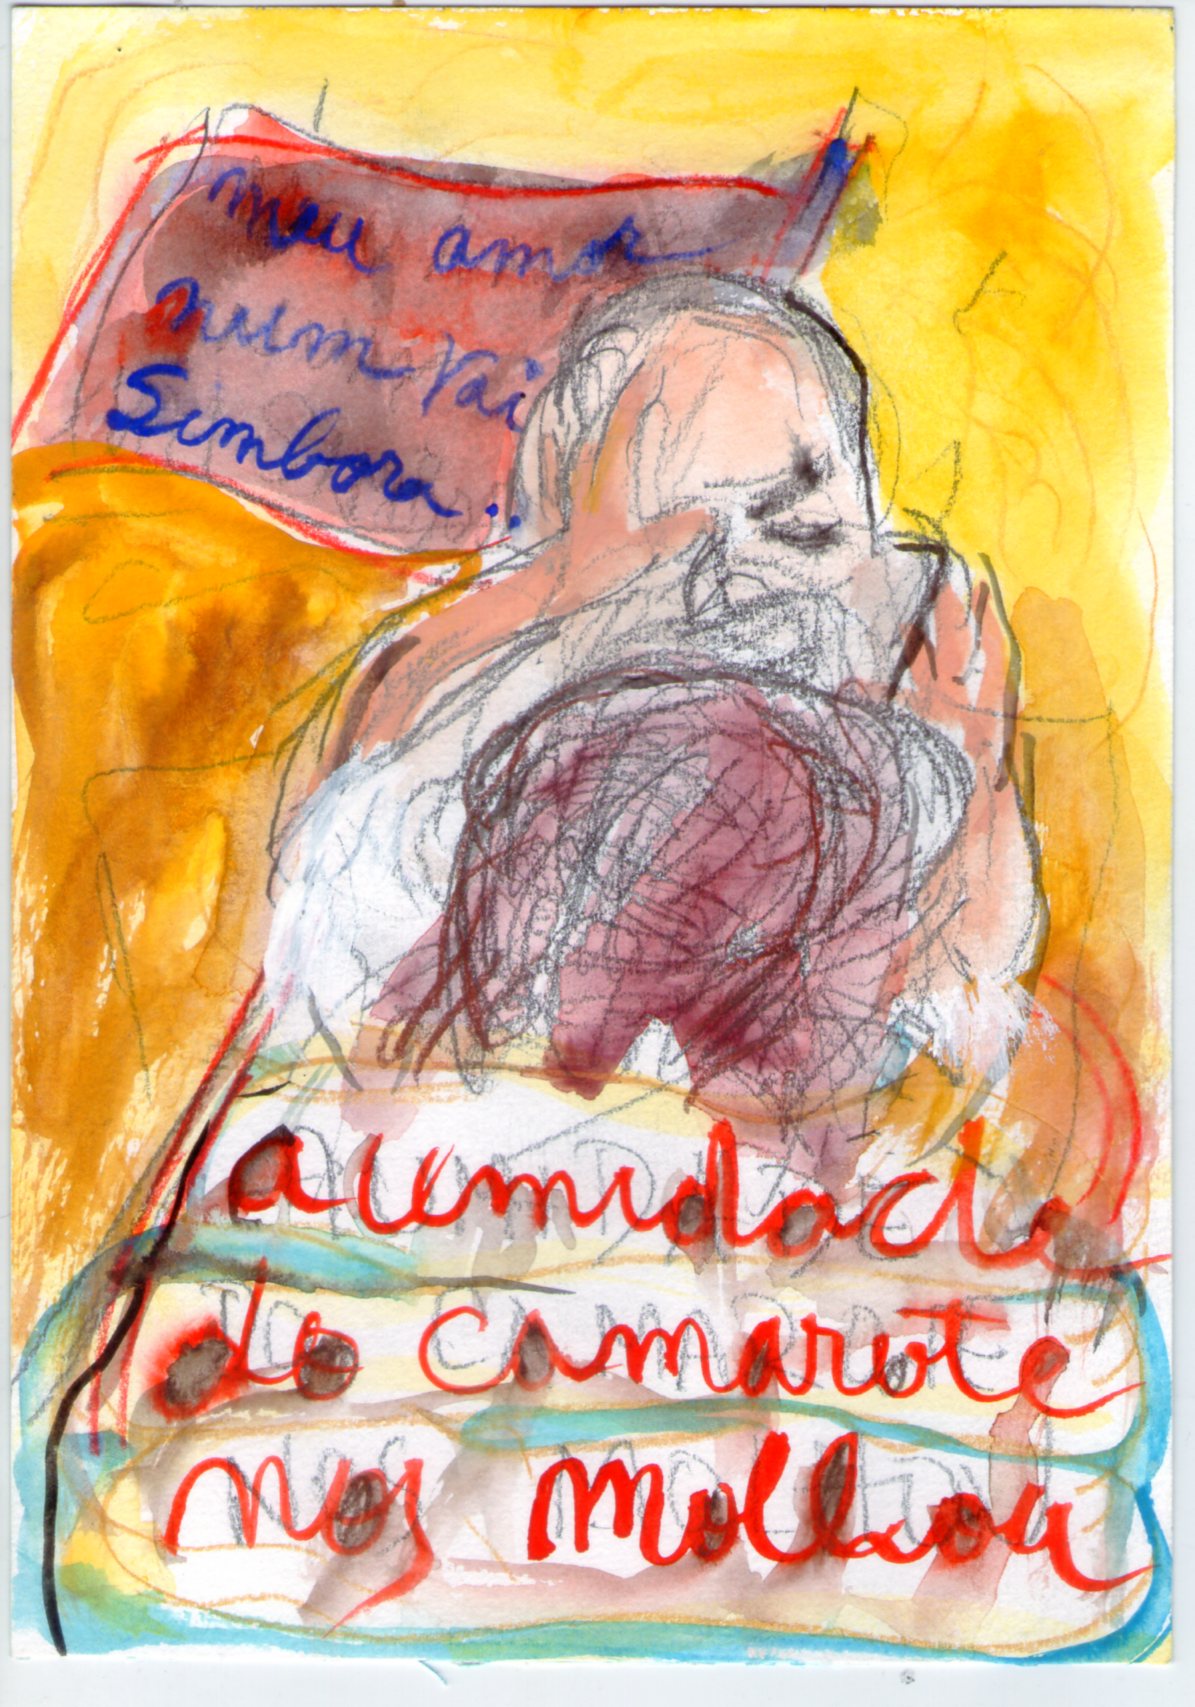 meu amor
num vai
Simbora..
a umidade
do camarote
nos molhou